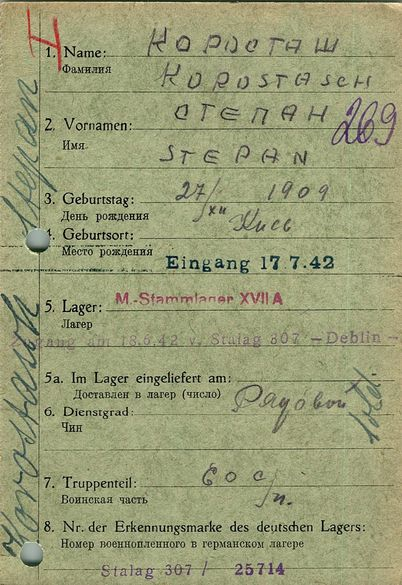 4
1. Name: КОРОСТАШ
Фамилия KOROSTASCH
2. Vornamen: СТЕПАН
269
Имя STEPAN
3. Geburtstag: 27/XII 1909
День рождения
4. Geburtsort: Киев
Место рождения
Eingang 17.7.42
5. Lager: M.-Stammlager XVII A
Лагер
am 18.6.42 v. Stalag 307 – Deblin –
5a. Im Lager eingeliefert am:
Доставлен в лагер (число)
6. Dienstgrad: Рядовой
Чин
Sold.
7. Truppenteil:
Воинская часть
8. Nr. der Erkennungsmarke des deutschen Lagers:
Номер военнопленного в германском лагере
Stalag 307 / 25714
Korostasch Stepan